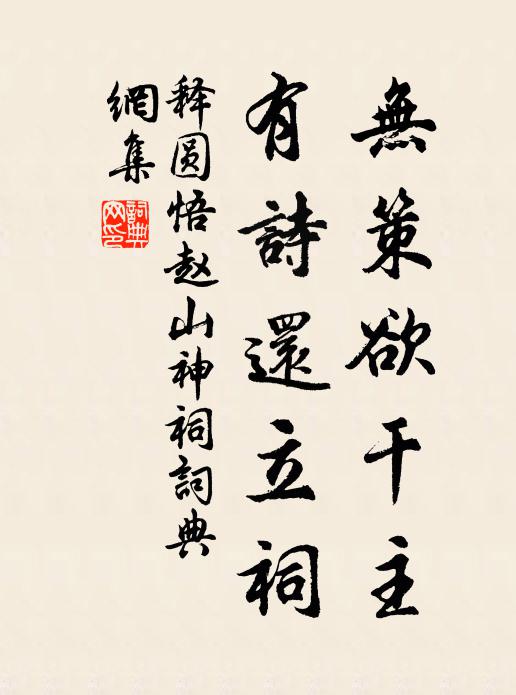 無策欲干主
有詩還立祠
释圆悟赵山神祠詞典
網集
詞典网印